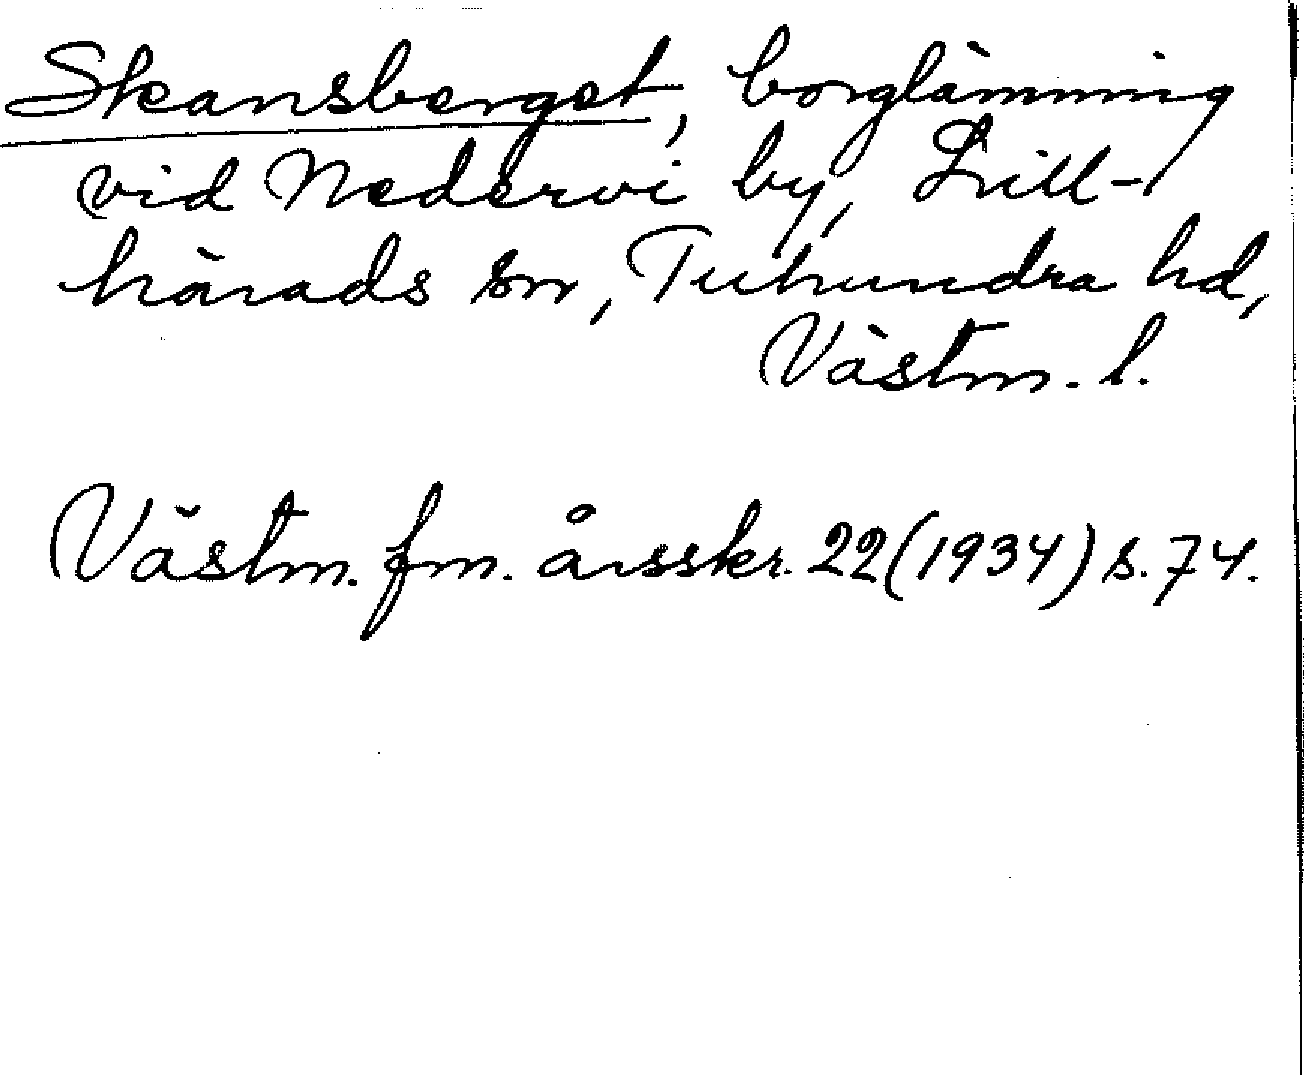 Skansberget, borglämning
vid Nedervi by, Lill-
härads sn, Tuhundra hd,
Västm. l.
Västm. fm. årsskr. 22 (1934) s. 74.